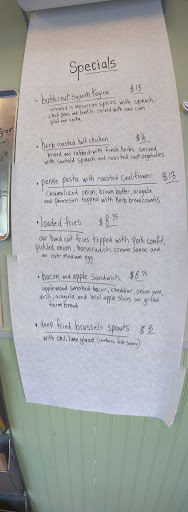 Specials
• butternut squash tagine $13
infused in Moroccan spices with spinach,
chick peas and lentils. served with cous cous
pita and raita
• herb roasted half chicken $16
brined and rubbed with fresh herbs. served
with sauteed spinach and roasted root vegetables
• penne pasta with roasted cauliflower $13
caramelized onion, brown butter, arugula
and parmesan topped with herb breadcrumbs
• loaded fries $8.75
our hand cut fries topped with pork confit,
pickled onion, horseradish cream sauce and
an over medium egg
• bacon and apple sandwich $8.75
applewood smoked bacon, cheddar, onion jam,
aioli, arugula and local apple slices on grilled
farm bread
• deep fried brussels sprouts $5
with chili lime glaze (contains fish sauce)